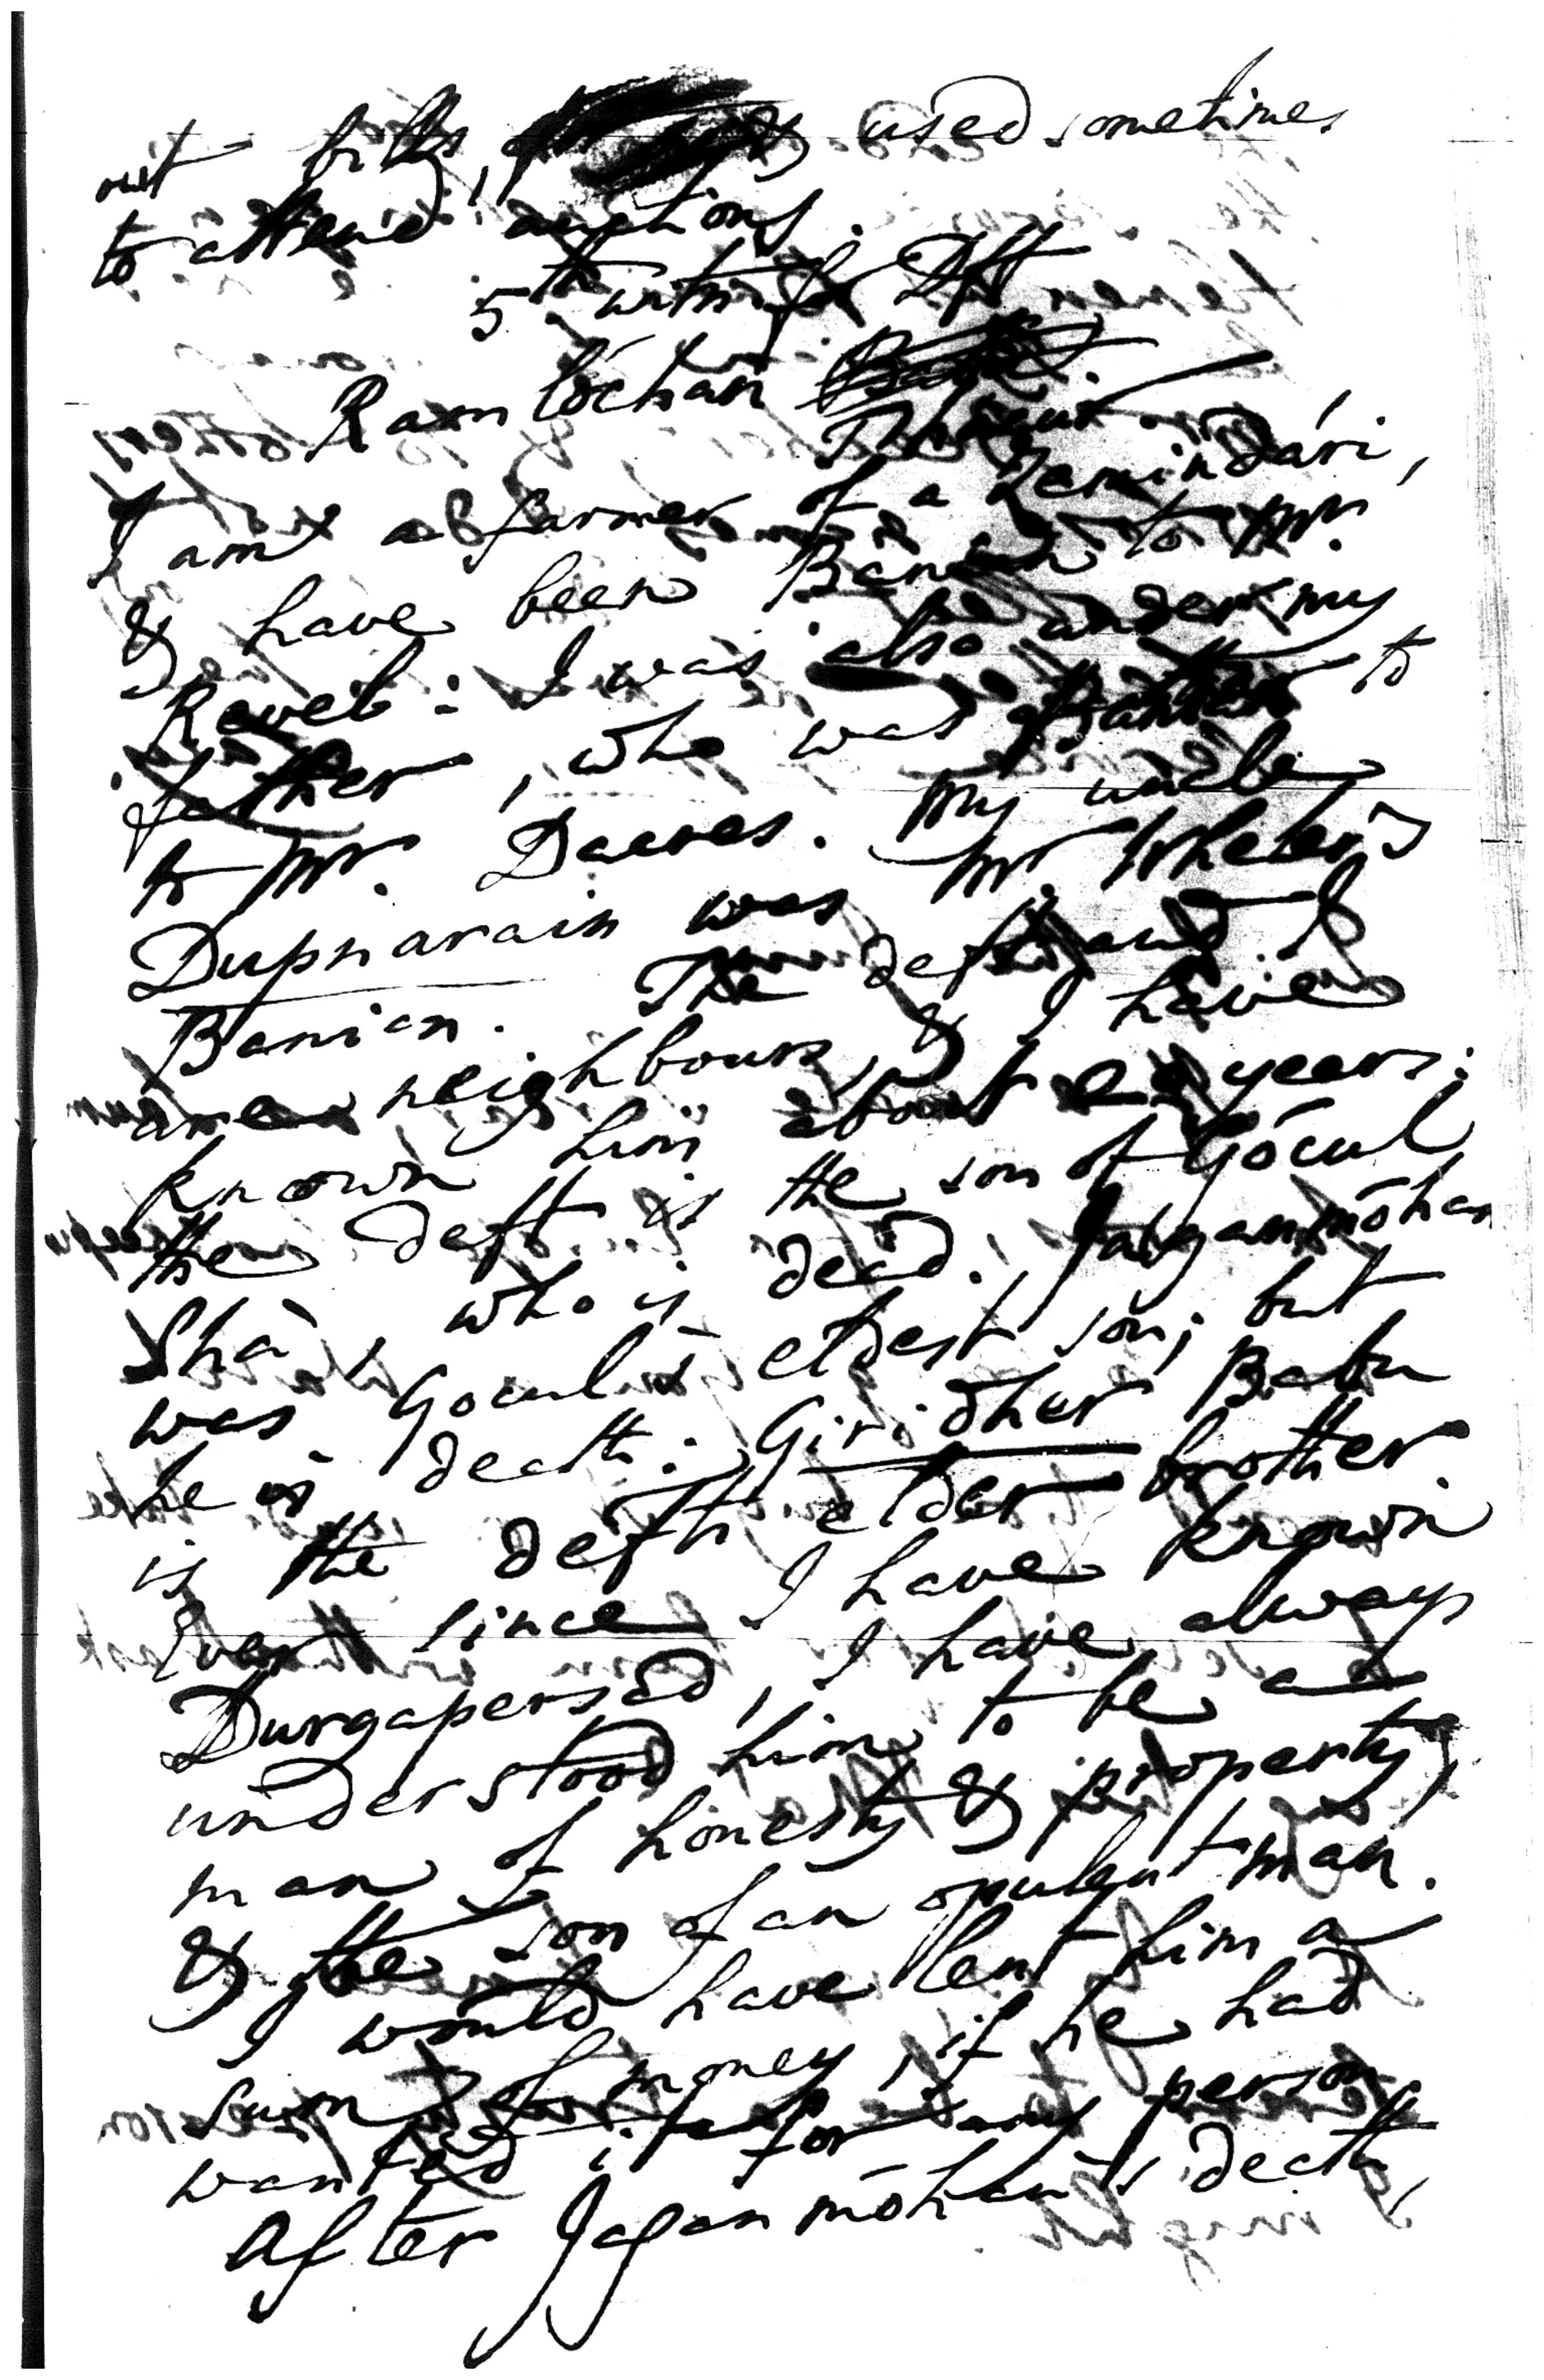 out bills, & used sometimes
to attend auctions.
5th witn. for Dft
Ramlochan
I am a farmer of a Zamindári,
& have been Banian to Mr.
Reveb: I was also under my
father, who was to
to Mr. Dacres. My uncle
Dupnarain was Mr. Wheler's
Banian. The deft and I
are neighbours, & I have
known him about years:
the deft is the son of Gócul
Shá, who is dead. Jagganmóhan
was Gocul's eldest son; but
he is death: Giridher Babu
is the defts elder brother.
Ever since I have known
Durgapersad, I have always
understood him to be a
man of honesty & property,
& the son of an opulent man.
I would have lent him a
sum of money, if he had
wanted it for any person
After Jaganmóhan's death,